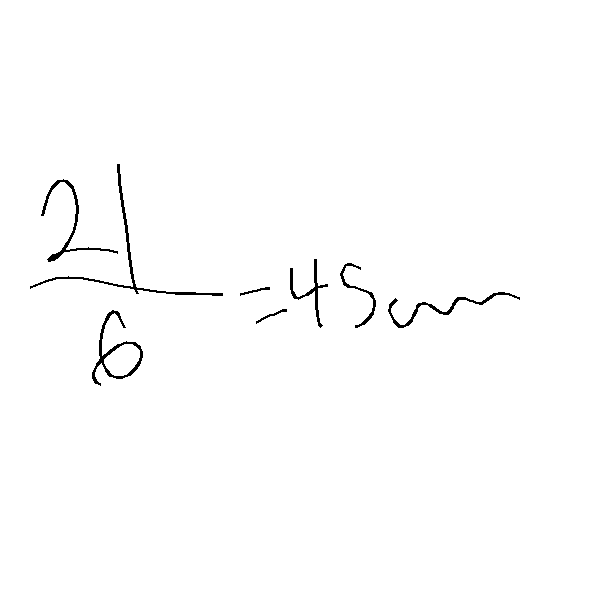 21
6
=45cm